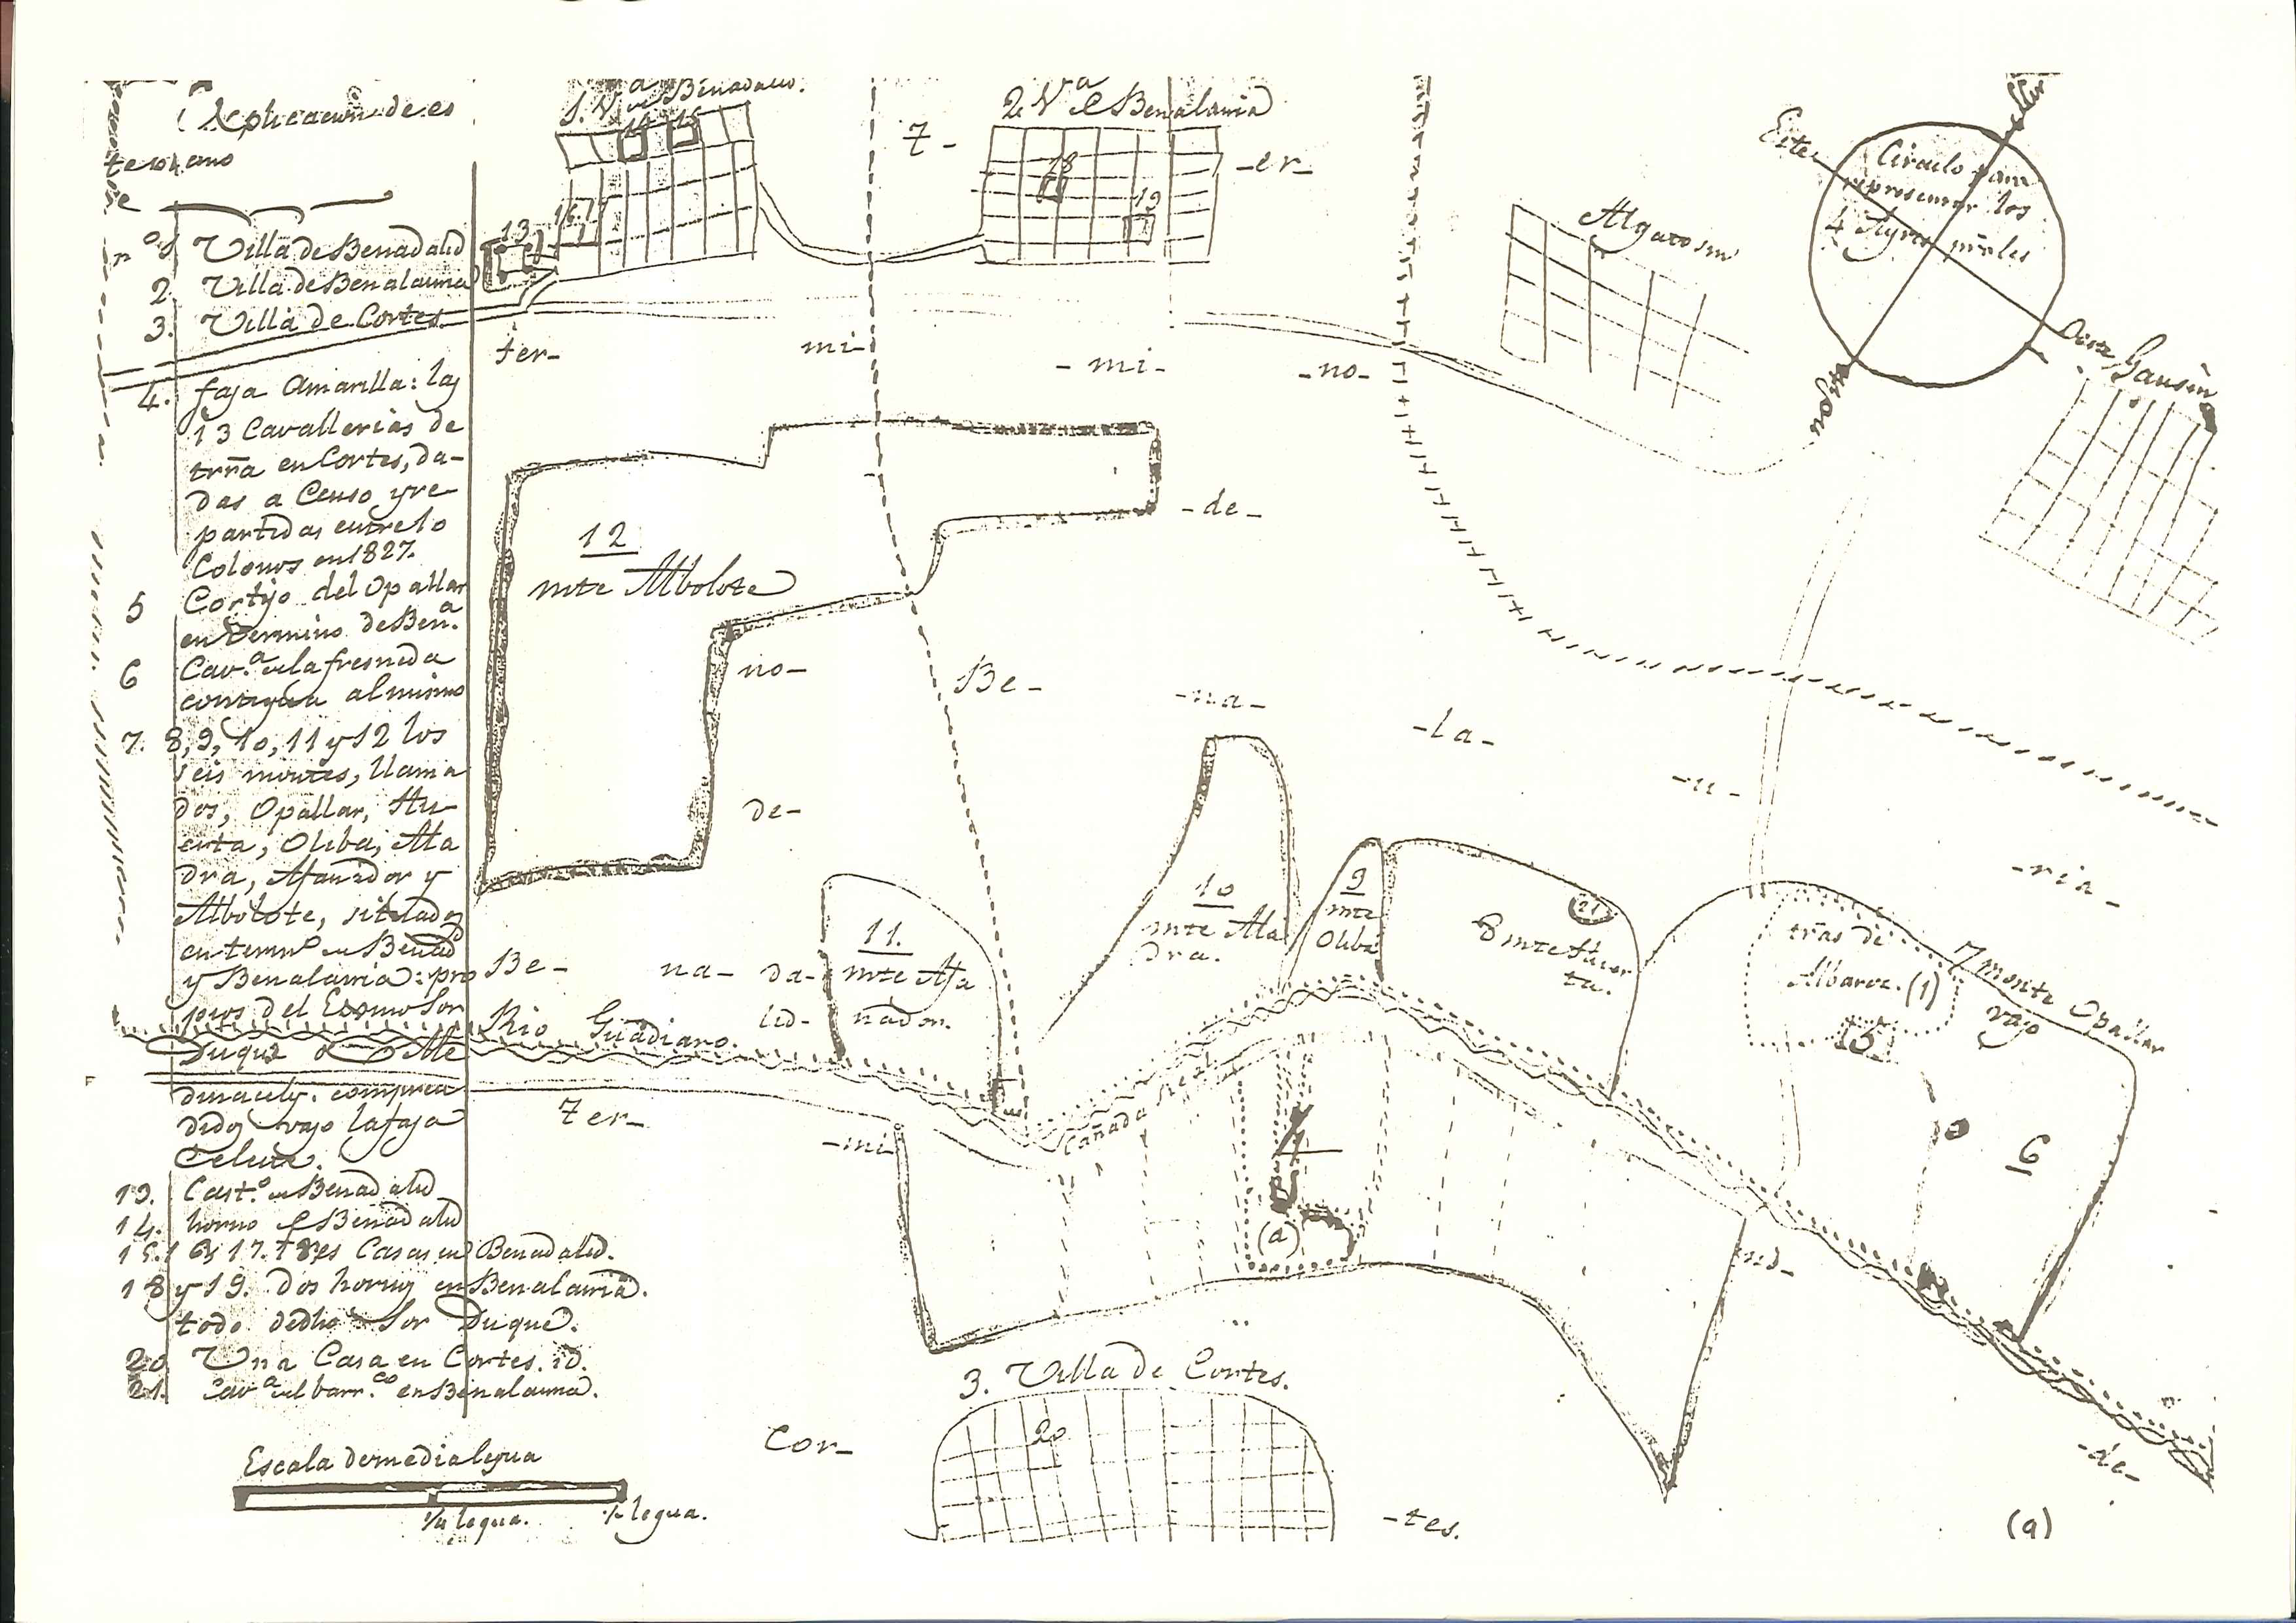 Explicacion de es
te plano
nos 1 Villa de Benadalid
2. Villa de Benalauria
3. Villa de Cortes.
4. faja Amarilla: las
13 Cavallerias de
trrã en Cortes, da-
das a Censo y re-
partidas entre lo
Colonos en 1827.
5 Cortijo del Opallar
en termino de Ben.a
6 Cav.a de la fresneda
contigua al mismo
7. 8, 9, 10, 11 y 12 los
seis montes, llama
dos, Opallar, Hu-
erta, Oliba, Ala
dra, Afanador y
Albolote, situados
en termo de Benad
y Benalauria: pro
pios del Exsmo Sor
Duque de Me
dinacely. compren
didos vajo la faja
Celeste.
13. Cast.o de Benadalid
14. horno de Benadalid
15. 16 y 17. tres Casas en Benadalid.
18 y 19. dos hornos en Benalauria.
todo de dho Sor Duque.
20 Una Casa en Cortes. id.
21. Cav.a del barr.co en Benalauria.
Escala de media legua
1/4 legua. 1/2 legua.
1. Va de Benadalid.
14 15
13 16. 17
2. Va de Benalauria
18
19
T- -er-
-mi- -no-
-de-
Be- -na- -la- -u- -ria-
ter- mi-
no-
de-
Be- na- da-
lid-
Algatosin
Gausin
Este
Oeste
Sur
Circulo para
representar los
4 Ayres prãles
12
mte Albolote
11.
mte Afa
nador.
10
mte Ala
dra.
9
mte
Oliba
8 mte Huer
ta.
21
trãs de
Albarra. (1)
5
7 Monte Opallar
vajo
6
Rio Guadiaro.
Cañada Real
4
(a)
Ter- -mi- -no-
-de-
3. Villa de Cortes.
20
Cor- -tes.
(a)